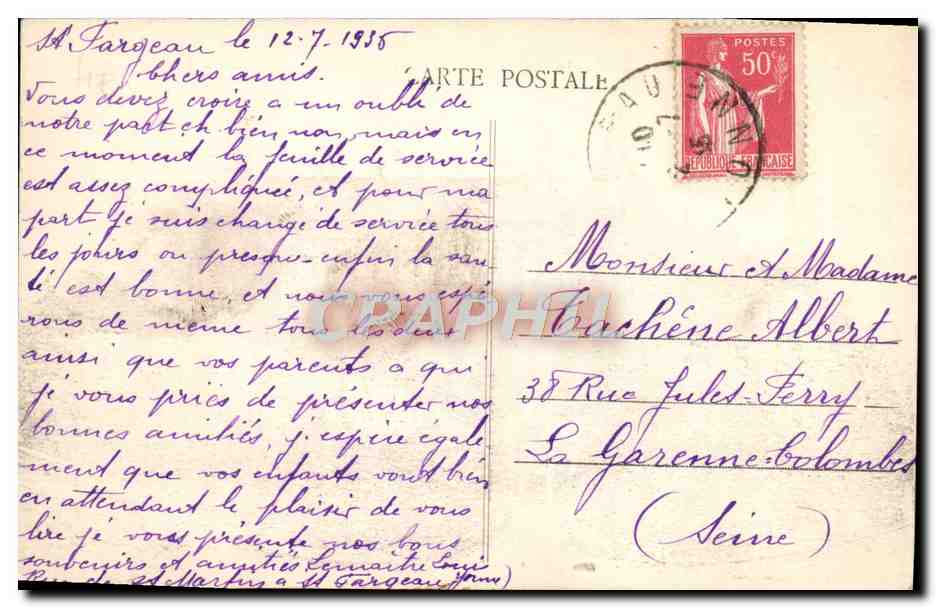 St Fargeau le 12-7-1935
Chers amis.
Vous devez croire a un oublé de
notre part eh bien non, mais en
ce moment la feuille de service
est assez compliquée, et pour ma
part je suis changé de service tous
les jours ou presque enfin la san-
té est bonne, et nous vous espé
rons de meme tous les deux
ainsi que vos parents a qui
je vous pries de présenter nos
bonnes amitiés, j'espère égale
ment que vos enfants vont bien
en attendant le plaisir de vous
lire je vous présente nos bons
souvenirs et amitiés Lemaitre Louis
Rue de St Martin a St Fargeau (Yonne)
CARTE POSTALE
POSTES
50c
REPUBLIQUE FRANCAISE
YONNE
Monsieur et Madame
Tachéne Albert
38 Rue Jules-Ferry
La Garenne-Colombes
(Seine)
CRAPHIL